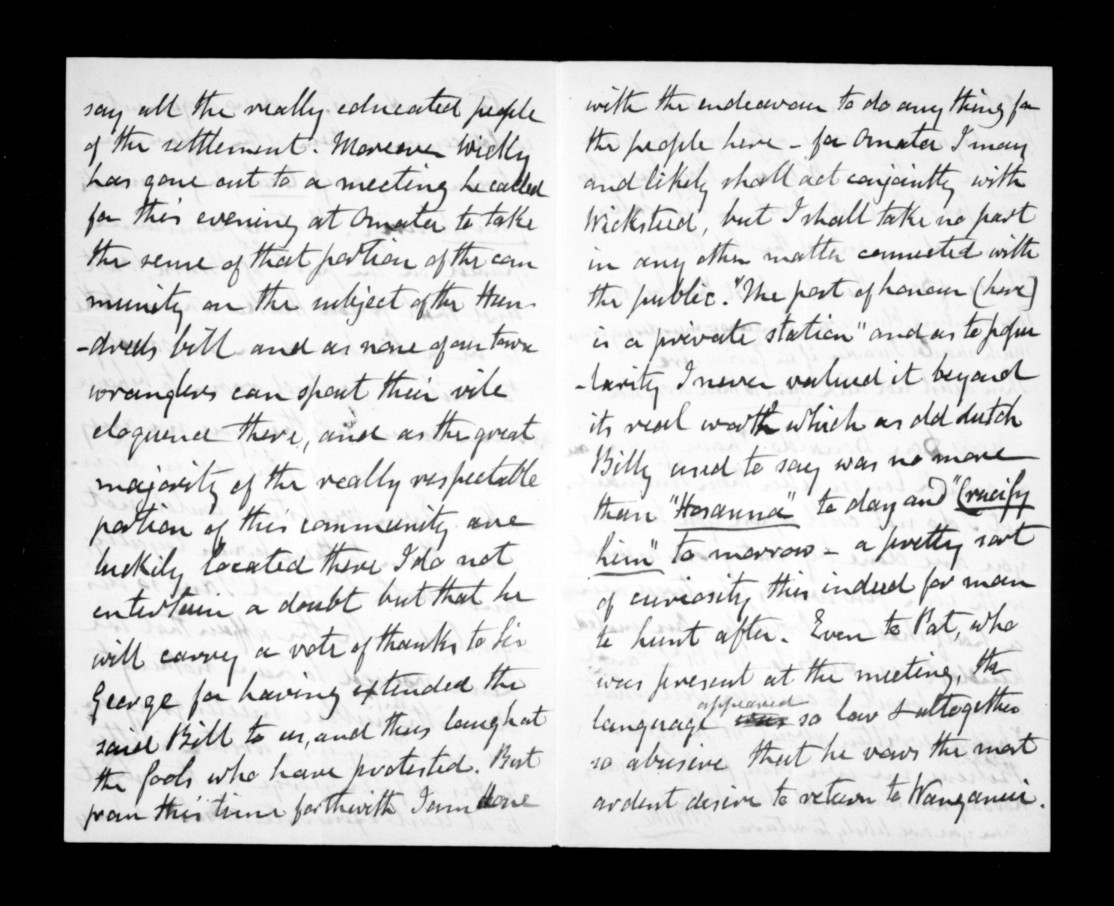 say all the really educated people
of the settlement. Moreover Wicky
has gone out to a meeting he called
for this evening at Omata to take
the sense of that portion of the com
munity on the subject of the Hun-
-dreds bill and as none of our town
wranglers can spout their vile
eloquence there, and as the great
majority of the really respectable
portion of this community are
luckily located there I do not
entertain a doubt but that he
will carry a vote of thanks to Sir
George for having extended the
said Bill to us, and thus laugh at
the fools who have protested. But
from this time forthwith I am done
with the endeavour to do any thing for
the people here - for Omata I may
and likely shall act conjointly with
Wicksteed, but I shall take no part
in any other matter connected with
the public. "The post of honour (here)
is a private station" and as to popu
-larity I never valued it beyond
its real worth which as old dutch
Billy used to say was no more
than "Hosanna" to day and "Crucify
him" to morrow - a pretty sort
of curiosity this indeed for man
to hunt after. Even to Pat, who
was present at the meeting, the
language appeared so low & altogether
so abusive that he vows the most
ardent desire to return to Wanganui.